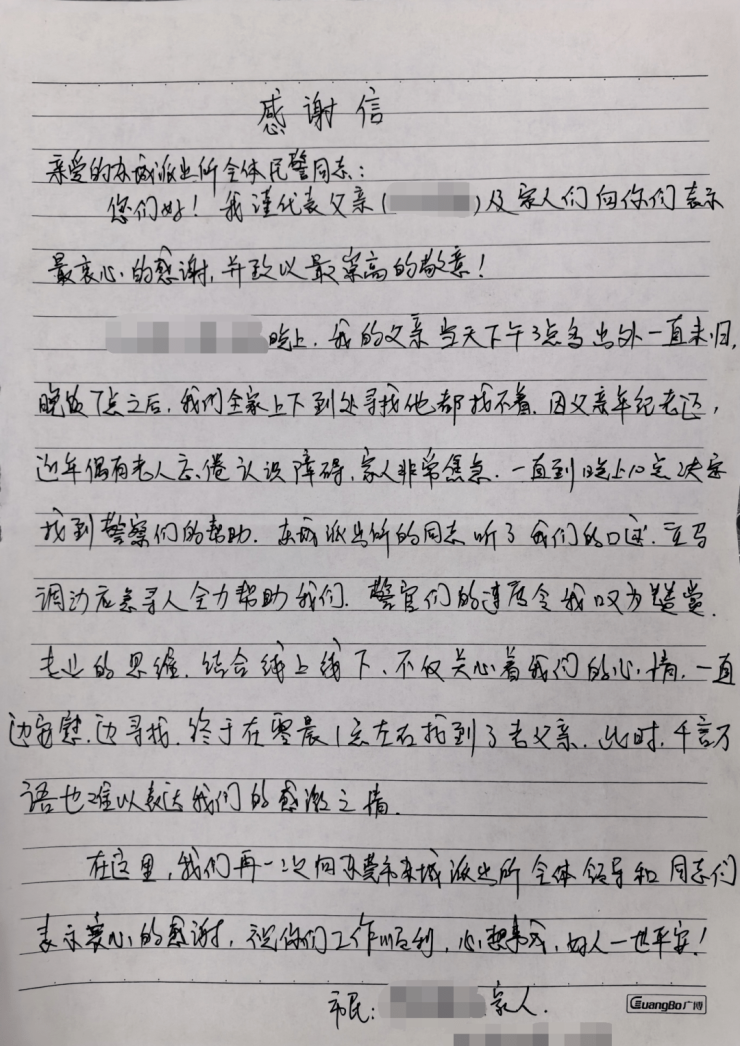 感谢信
亲爱的东城派出所全体民警同志：
您们好！我谨代表父亲（）及家人们向你们表示
最衷心的感谢，并致以最崇高的敬意！
晚上，我的父亲当天下午3点多出外一直未归，
晚饭7点之后，我们全家上下到处寻找他都找不着，因父亲年纪老迈，
近年偶有老人 认识障碍，家人非常焦急，一直到晚上10点决定
找到警察们的帮助。东城派出所的同志听了我们的口述，立马
调动应急寻人全力帮助我们。警官们的速度令我叹为
专业的思维，结合线上线下，不仅关心着我们的心情，一直
边安慰，边寻找，终于在零晨1点左右找到了老父亲。此时，千言万
语也难以表达我们的感激之情。
在这里，我们再一次向东莞市东城派出所全体领导和同志们
表示衷心的感谢，祝你们工作顺利，心想事成，好人一世平安！
市民：家人.
GuangBo广博